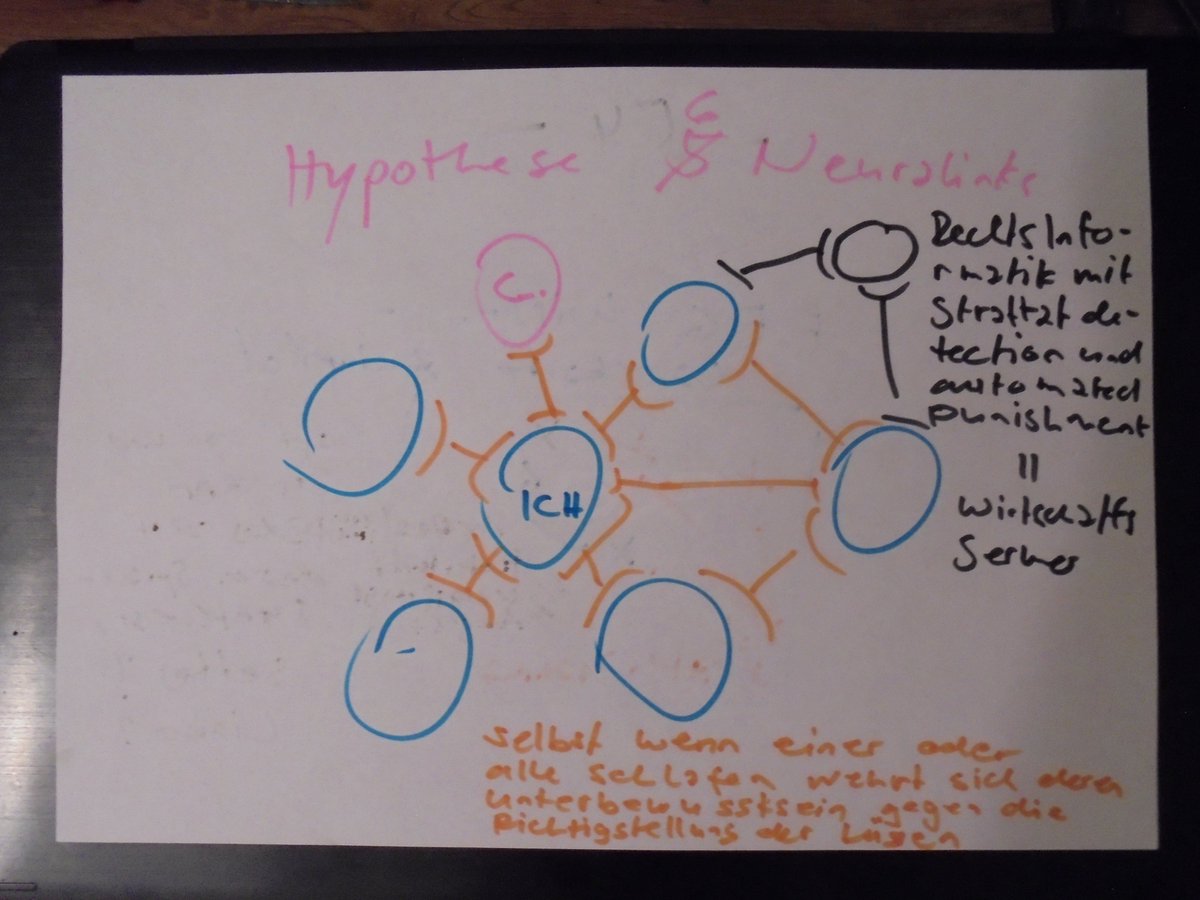 Hypothese 6 Neuralinks
C.
ICH
RechtsInfo-
rmatik mit
Straftat de-
tection und
automated
punishment
=
Wirtschafts
Server
selbst wenn einer oder
alle schlafen wehrt sich deren
unterbewusstsein gegen die
Richtigstellung der Lügen